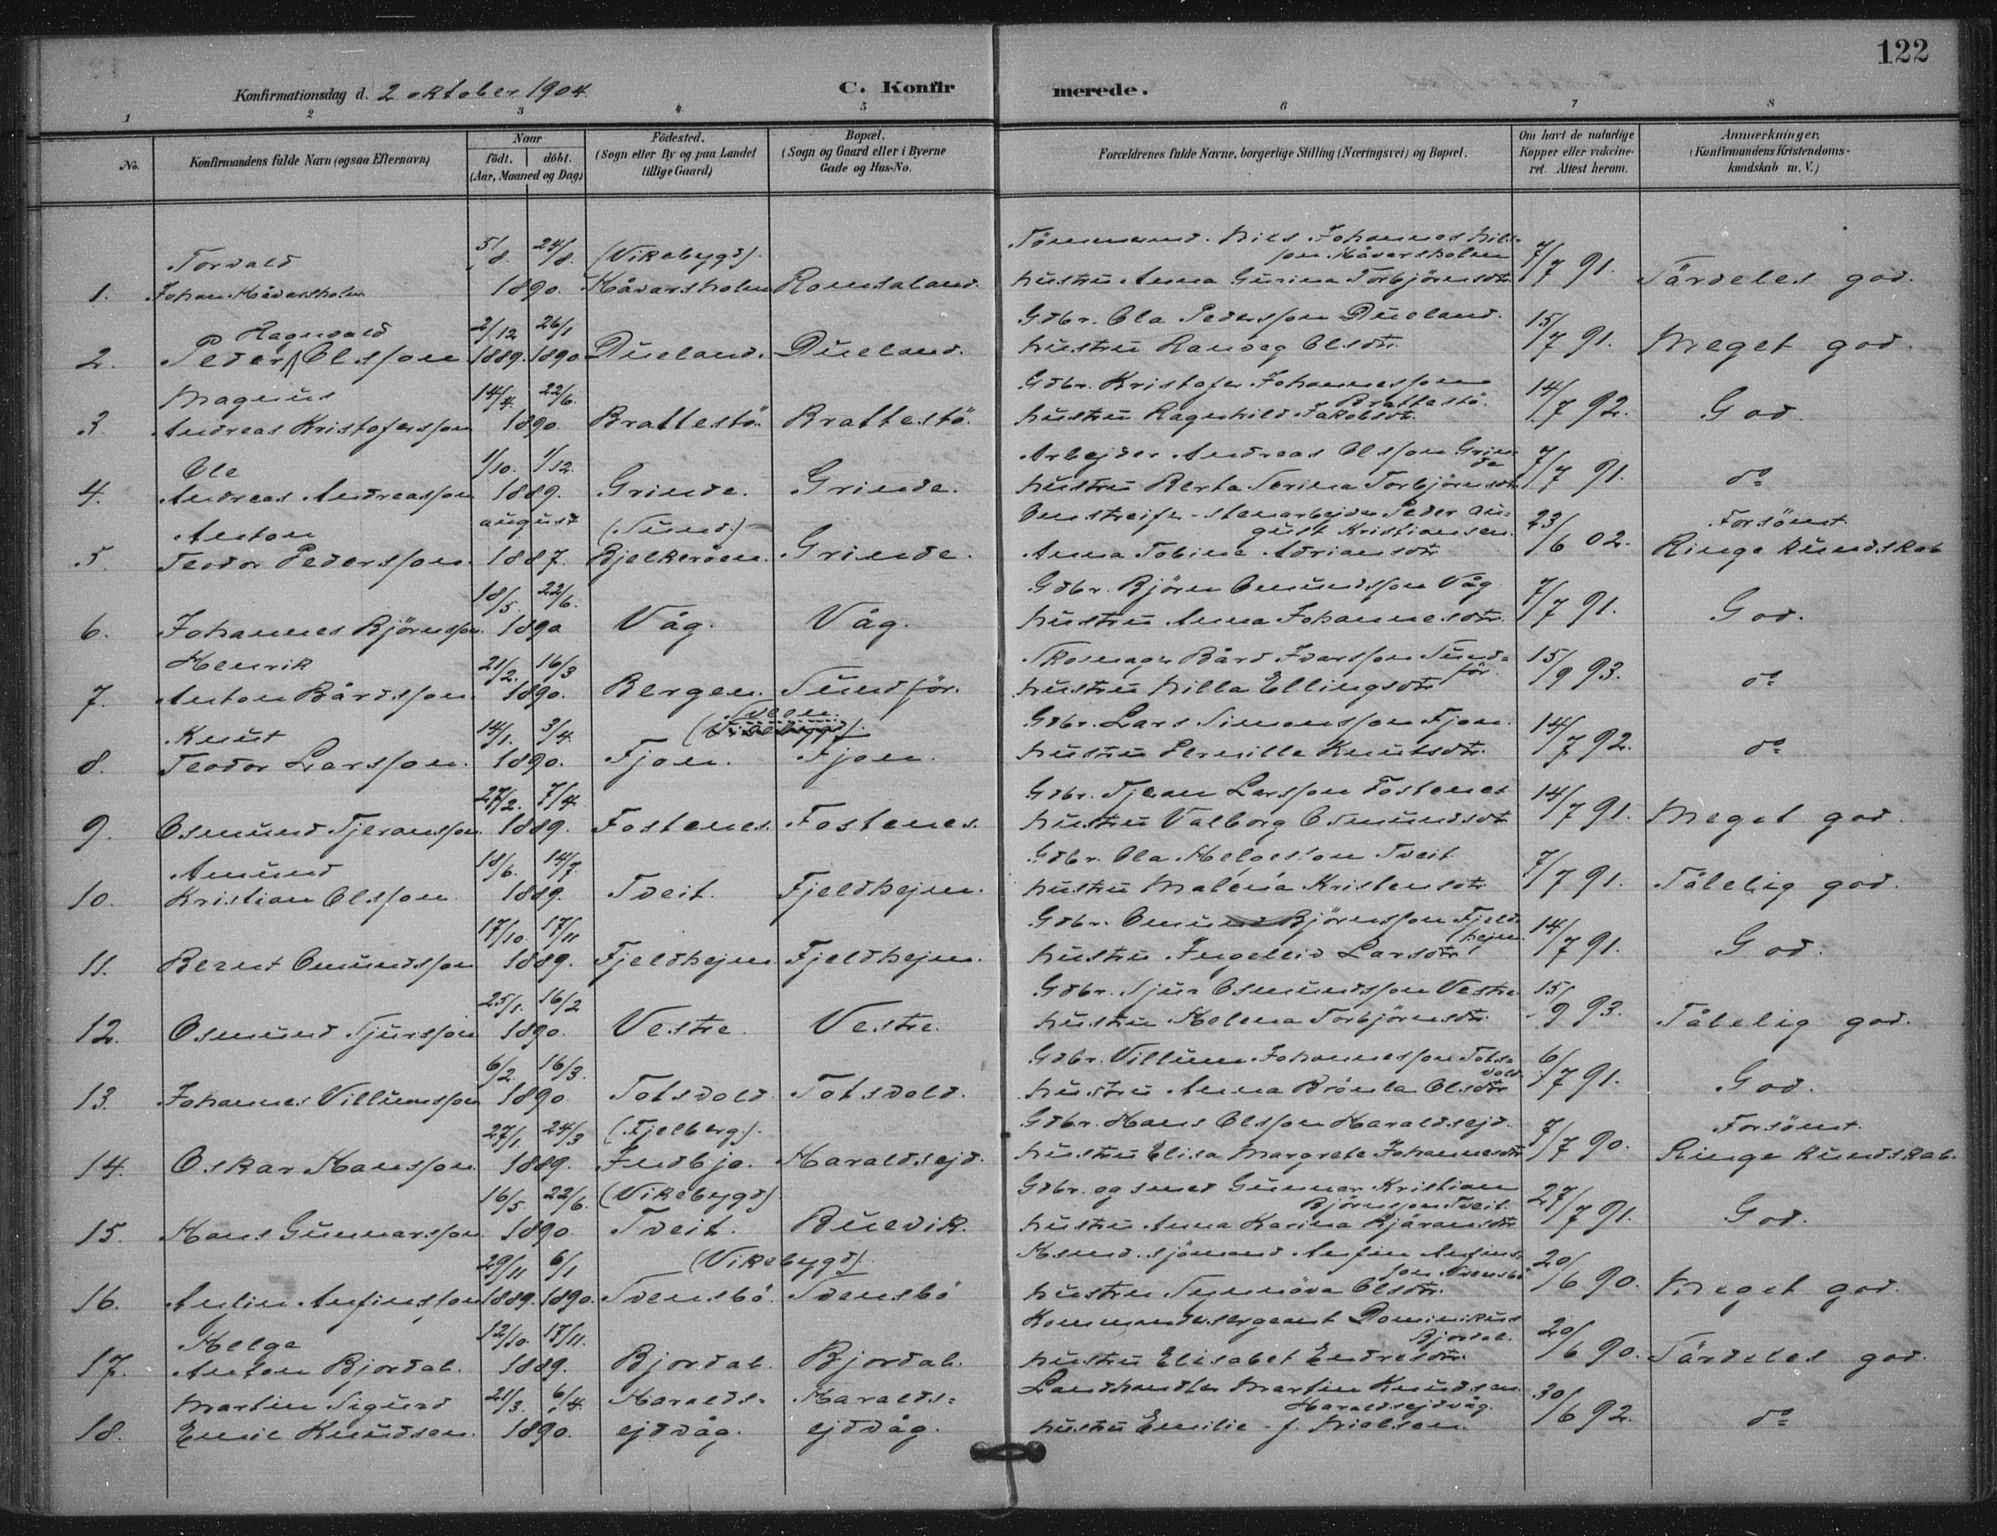 122
Konfirmationsdag d. 2 oktober 1904.
C. Konfirmerede.
1 2 3 4 5 6 7 8
No.
Konfirmandens fulde Navn (ogsaa Efternavn)
Naar
födt. döbt.
(Aar, Maaned og Dag)
Födested.
(Sogn eller By og paa Landet
tillige Gaard)
Bopæl.
(Sogn og Gaard eller i Byerne
Gade og Hus-No.
Forældrenes fulde Navne, borgerlige Stilling (Næringsvei) og Bopæl.
Om havt de naturlige
Kopper eller vakcine-
ret. Attest herom.
Anmærkninger.
(Konfirmandens Kristendoms-
kundskab m. V.)
Torvald 5/8. 24/8. (Vikebygd). Tömmermand. Nils Johannes Nils-
son Håvarsholm 7/7 91.
1. Johan Håvarsholm 1890. Håvarsholm Romsaland. hustru Anna Gurina Torbjörnsdtr. Særdeles god.
Ragnvald 2/12 26/1 Gdbr. Ola Pedersson Dueland. 15/7 91.
2. Peder Olsson 1889. 1890 Dueland. Dueland. hustru Ranveg Olsdtr. Meget god.
Magnus 14/4. 22/6. Gdbr. Kristofer Johannesson
Brattestö. 14/7 92.
3. Andreas Kristofersson 1890. Brattestö. Brattestö. hustru Ragnhild Jakobsdtr. God.
Ole 1/10. 1/12. Arbejder Andreas Olsson Grin-
de 7/7 91.
4. Andreas Andreasson 1889. Grinde. Grinde. hustru Berta Serina Torbjörnsdtr. do
Anton august (Sund.) Omstreifer - stenarbejder Peder Au-
gust Kristiansen. 23/6 02. Forsömt.
5. Teodor Pedersson. 1887. Bjelkeröen. Grinde. Anna Tobine Adriansdtr Ringe kundskab
18/5. 22/6. Gdbr. Björn Omundsson Våg 7/7 91.
6. Johannes Björnsson. 1890 Våg. Våg. hustru Anna Johannesdtr. God.
Henrik 21/2. 16/3 Skomager Bård Ivarsson Sund-
för. 15/9 93.
7. Anton Bårdsson. 1890. Bergen. Sundför. hustru Nilla Ellingsdtr do
Knut 14/1. 3/4. Gdbr. Lars Simonsson Fjon. 14/7 92.
8. Teodor Larsson. 1890. Fjon. Fjon. hustru Pernille Knutsdtr. do
27/2. 7/4. Gdbr. Tjeran Larsson Fostenes 14/7 91.
9. Osmund Tjeransson 1889. Fostenes. Fostenes. hustru Valborg Osmundsdtr Meget god.
Amund 18/6. 14/7. Gdbr. Ola Helgesson Tveit. 7/7 91.
10. Kristian Olsson. 1889. Tveit. Fjeldhejm. hustru Malena Kristensdtr Tålelig god.
17/10. 17/11 Gdbr. Omund Björnsson Fjeld-
hejm. 14/7 91.
11. Bernt Omundsson 1889. Fjeldhejm. Fjeldhejm. hustru Ingeleiv Larsdtr God.
25/1. 16/2 Gdbr. Sjur Osmundsson Vestre. 15/9 93.
12. Osmund Sjursson 1890. Vestre. Vestre. hustru Helena Torbjörnsdtr. Tålelig god.
6/2. 16/3. Gdbr. Villum Johannesson Tots-
vold. 6/7 91.
13. Johannes Villumsson 1890 Totsvold. Totsvold. hustru Anna Brönla Olsdtr God.
27/1. 24/3 (Fjelberg). Gdbr. Hans Olsson Haraldsejd. 7/7 90. Forsömt.
14. Oskar Hansson 1889. Indbjo. Haraldsejd. hustru Elisa Margrete Johannesdtr Ringe kundskab.
16/5 22/6. (Vikebygd) Gdbr. og smed Gunnar Kristian
Björnsson Tveit. 27/7 91.
15. Hans Gunnarsson. 1890. Tveit. Ruevik. hustru Anna Karina Bjåransdtr God.
29/11 6/1 (Vikebygd) Husmd. sjömand Anfin Anfins-
son Svensbö 20/6 90.
16. Anfin Anfinsson 1889. 1890. Svensbö. Svensbö hustru Synnöva Olsdtr. Meget god.
Helge 12/10. 17/11. Kommandersergeant Dominikus
Bjordal. 20/6 90.
17. Anton Bjordal. 1889. Bjordal. Bjordal. hustru Elisabet Endresdtr. Særdeles god.
Martin Sigurd 21/3. 6/4. Haralds- Haralds- Landhandler Martin Knudsen
Haraldsejdvåg. 30/6 92.
18. Emil Knudsen. 1890. ejdvåg. ejdvåg. hustru Emilie f. Nielsen. do